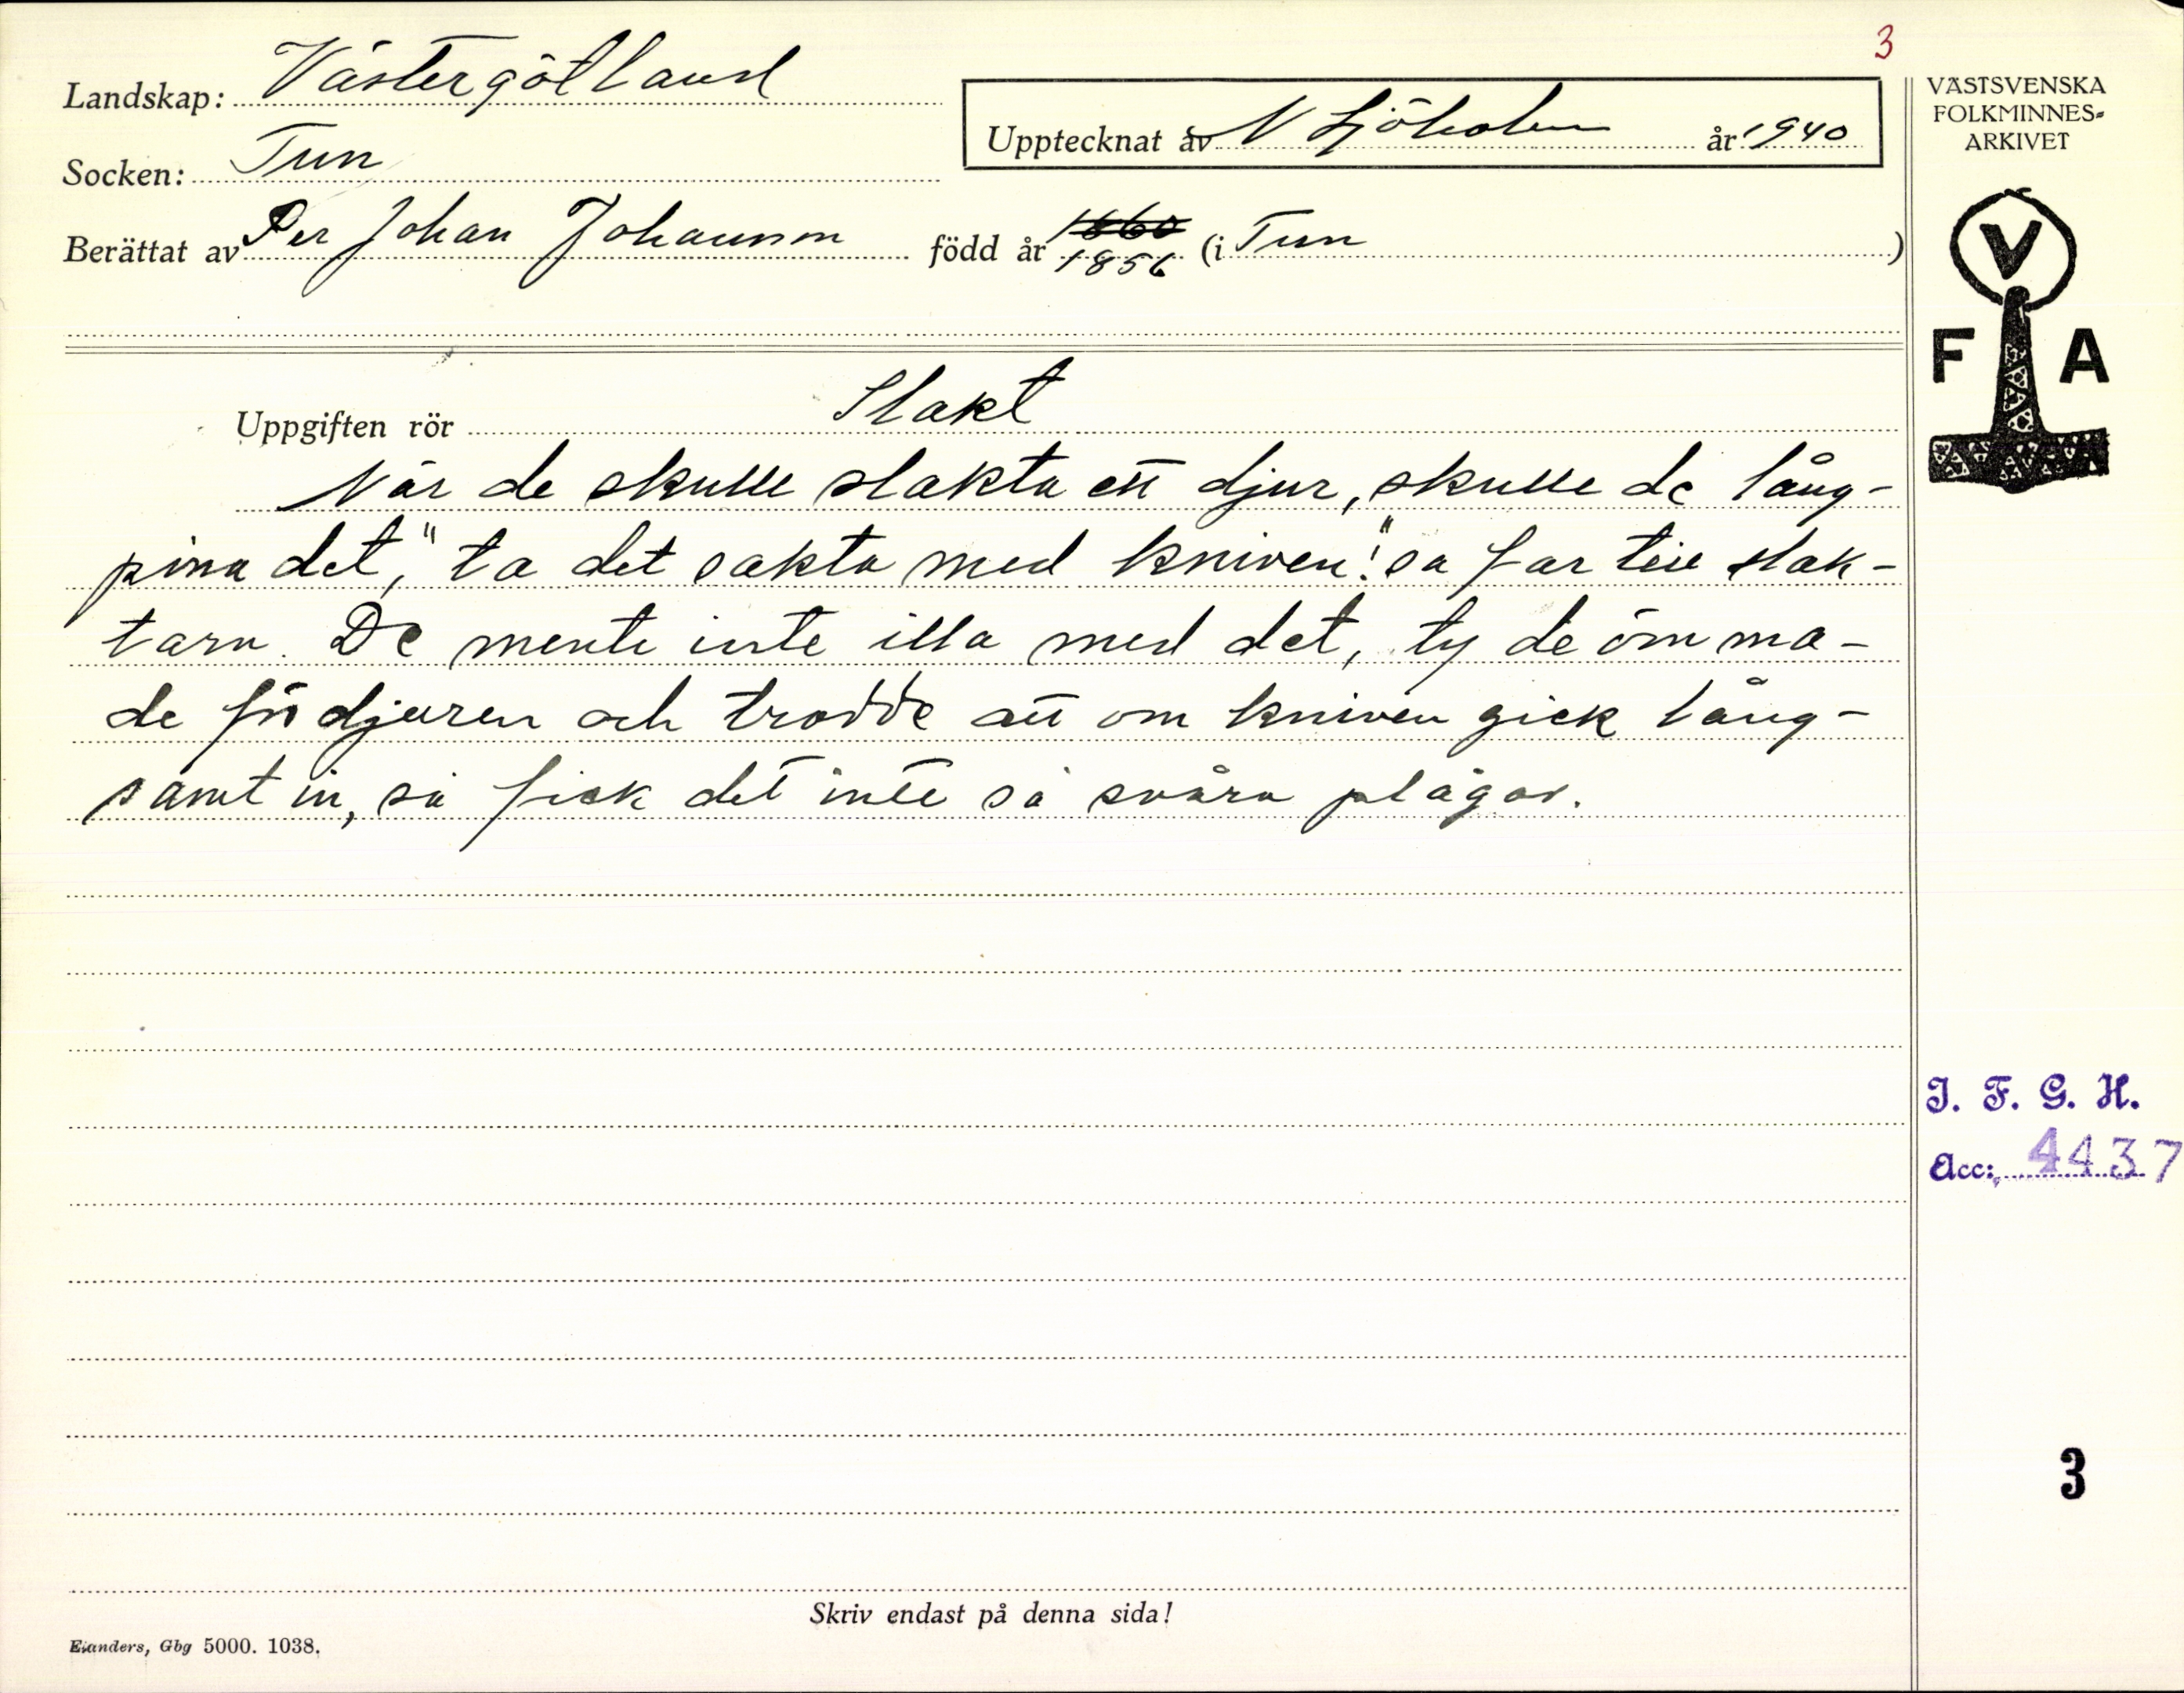 3
Landskap: Västergötland
Upptecknat av N Sjöholm år 1940
Socken: Tun
Berättat av Per Johan Johansson född år 1860 1856 (i Tun)
VÄSTSVENSKA
FOLKMINNES-
ARKIVET
V
F A
Uppgiften rör Slakt
När de skulle slakta ett djur, skulle de lång-
pina det, "ta det sakta med kniven!" sa far till slak-
tarn. De mente inte illa med det, ty de ömma-
de för djuren och trodde att om kniven gick lång-
samt in, så fick det inte så svåra plågor.
I. F. G. H.
Acc: 4437
3
Skriv endast på denna sida!
Elanders, Gbg 5000. 1038.